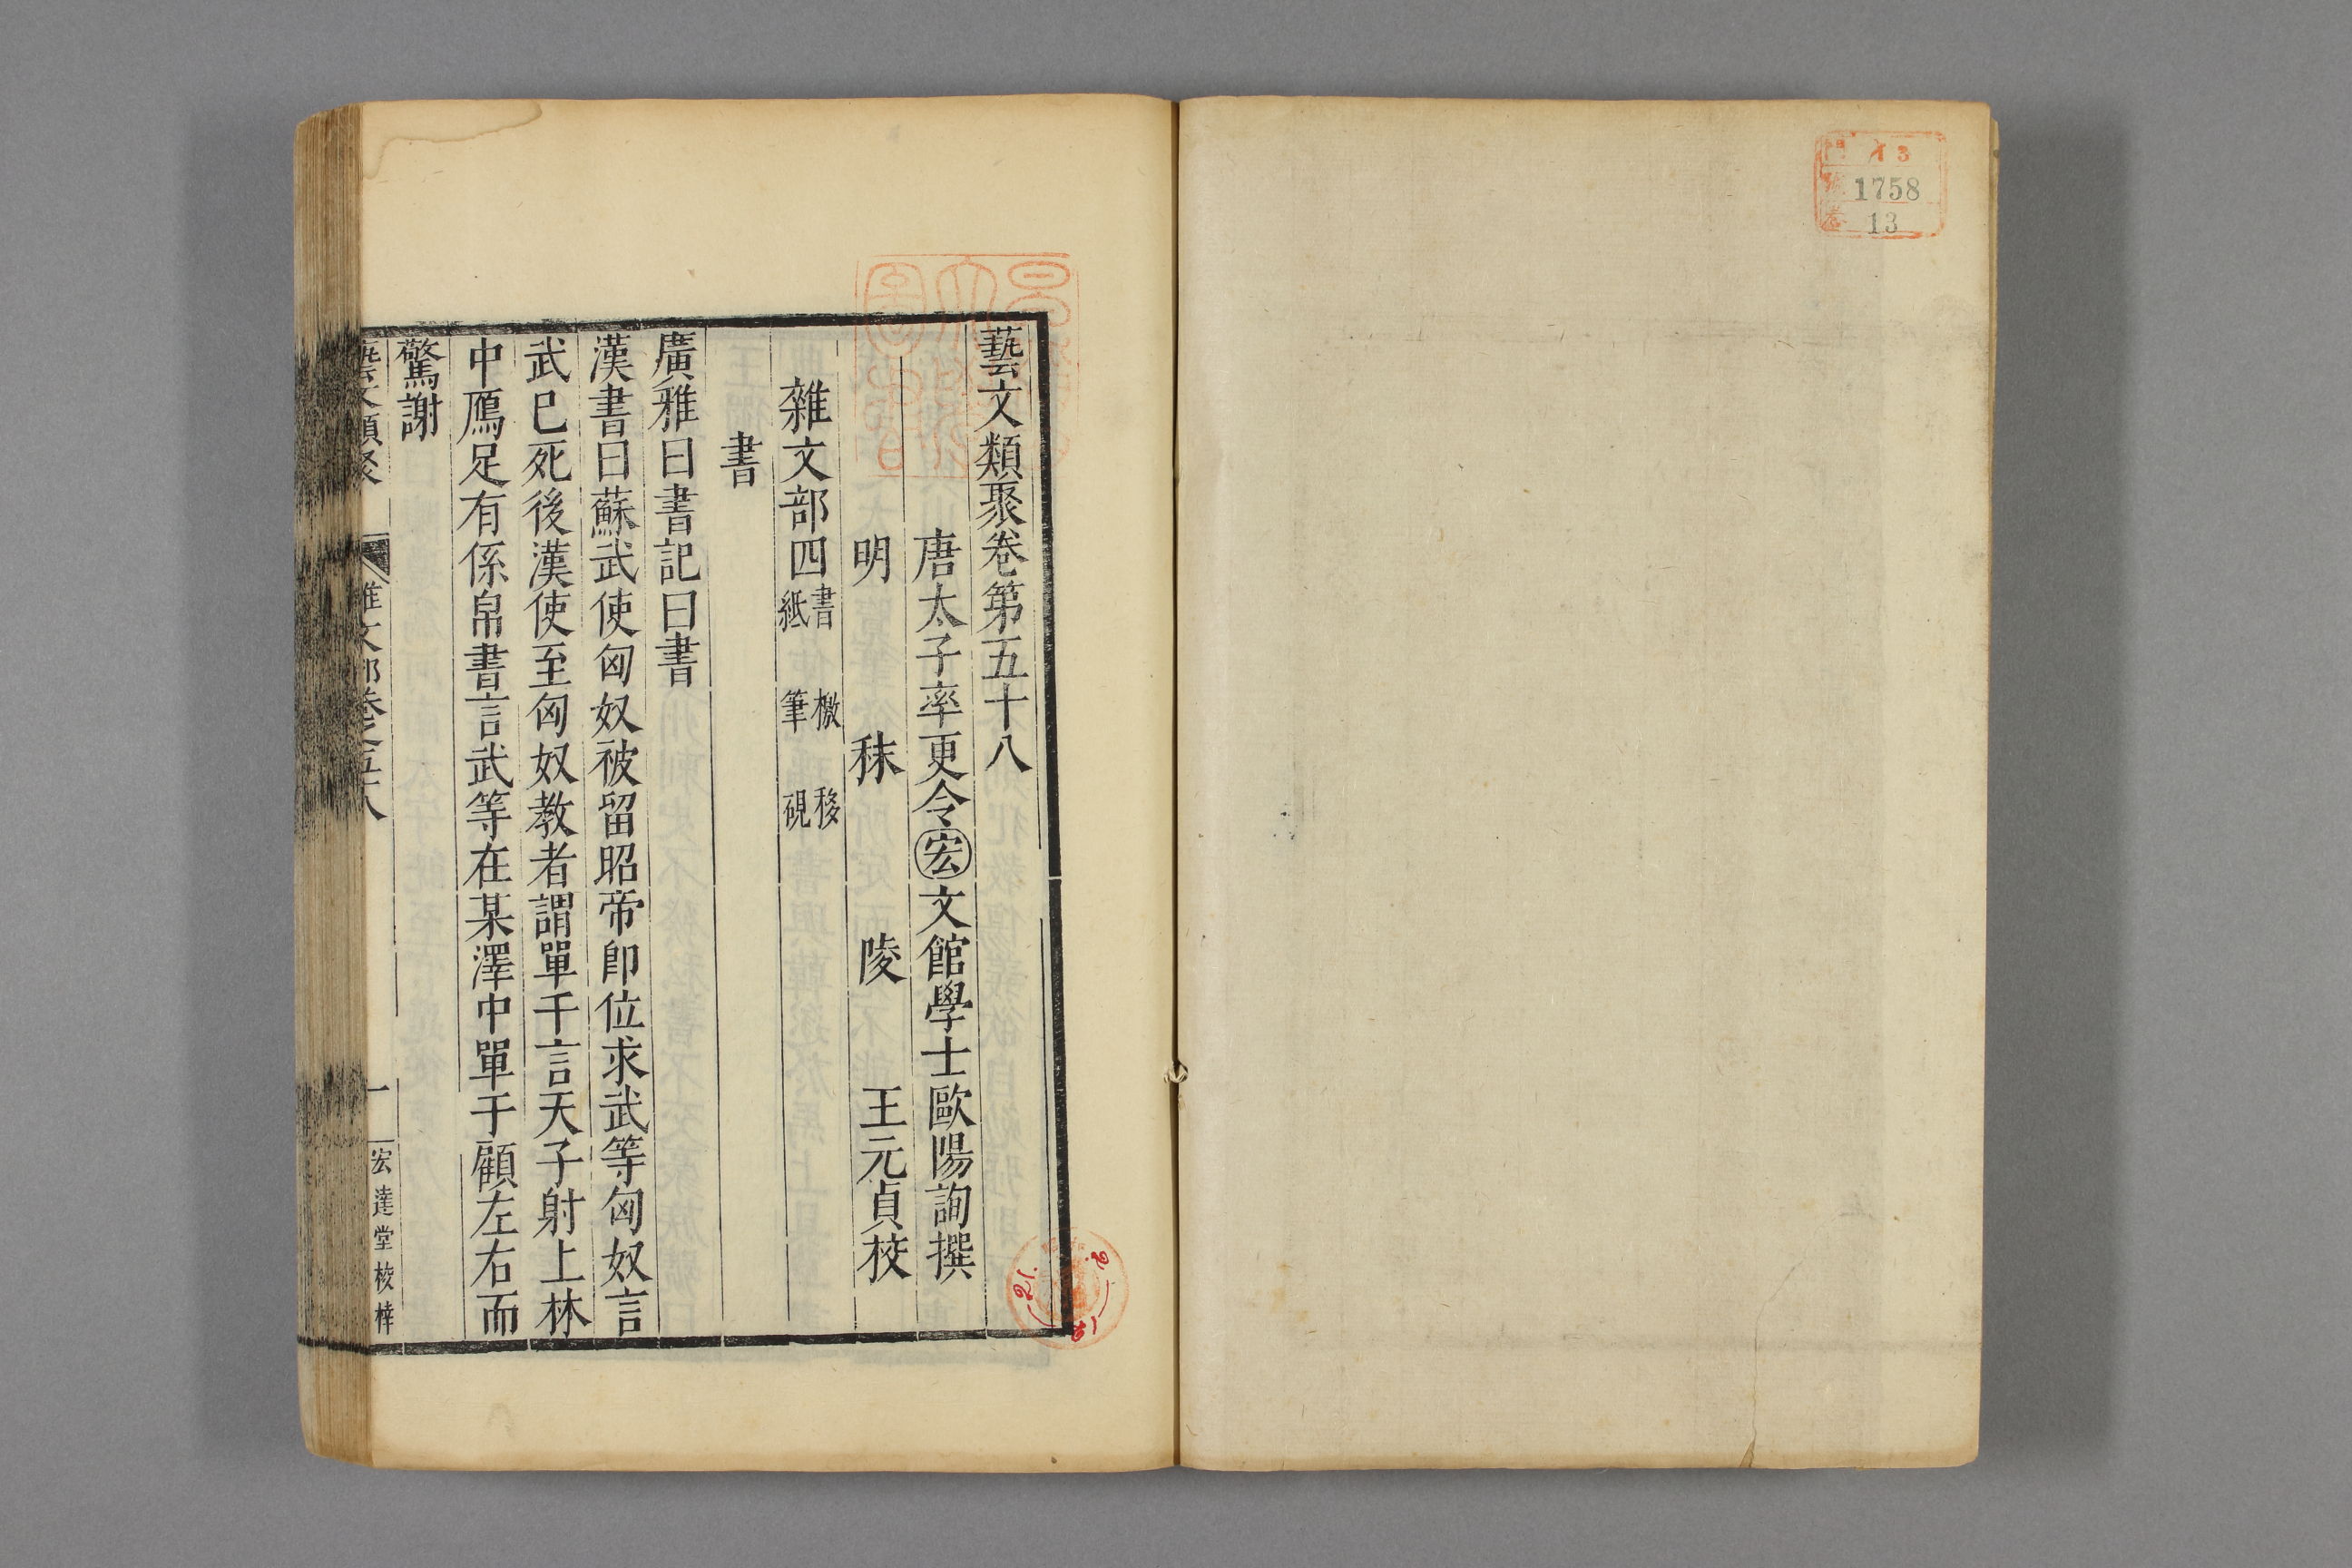 門 13
號 1758
卷 13
藝文類聚卷第五十八
唐太子率更令宏文館學士歐陽詢撰
明 秣 陵 王元貞校
雜文部四 書 檄 移 紙 筆 硯
書
廣雅曰書記曰書
漢書曰蘇武使匈奴被留昭帝卽位求武等匈奴言
武已死後漢使至匈奴教者謂單千言天子射上林
中鴈足有係帛書言武等在某澤中單于顧左右而
驚謝
藝文類聚 雜文部卷之五十八 一 宏達堂校梓